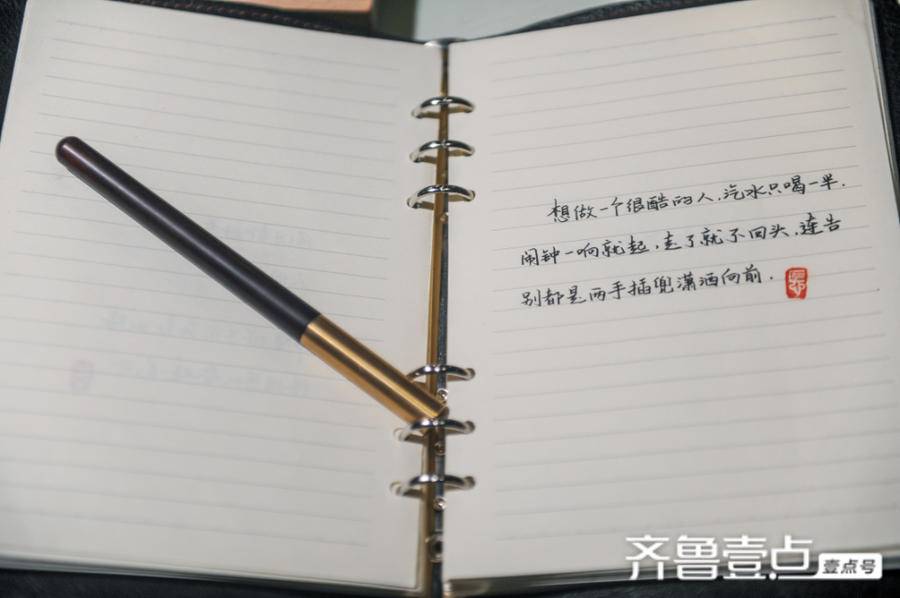 想做一个很酷的人,汽水只喝一半.
闹钟一响就起,走了就不回头,连告
别都是两手插兜潇洒向前.
齐鲁壹点
壹点号